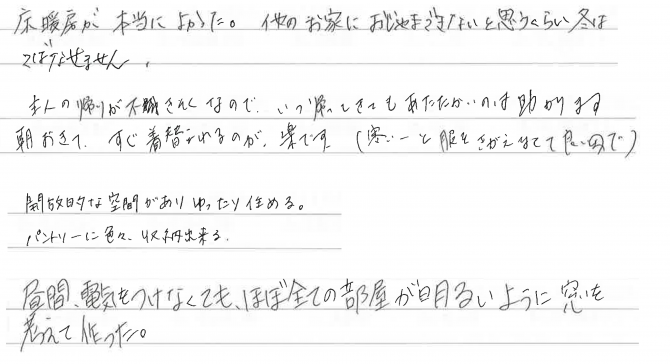 床暖房が本当によかった。他のお家におじゃまできないと思うくらい冬は
てばなせません。
主人の帰りが不規則なので、いつ帰ってきてもあたたかいのは助かります
朝おきて、すぐ着替えれるのが、楽です（寒い〜と服をきがえなくて良いので）
開放的な空間がありゆったり住める。
パントリーに色々、収納出来る。
昼間、電気をつけなくても、ほぼ全ての部屋が明るいように窓を
考えて作った。